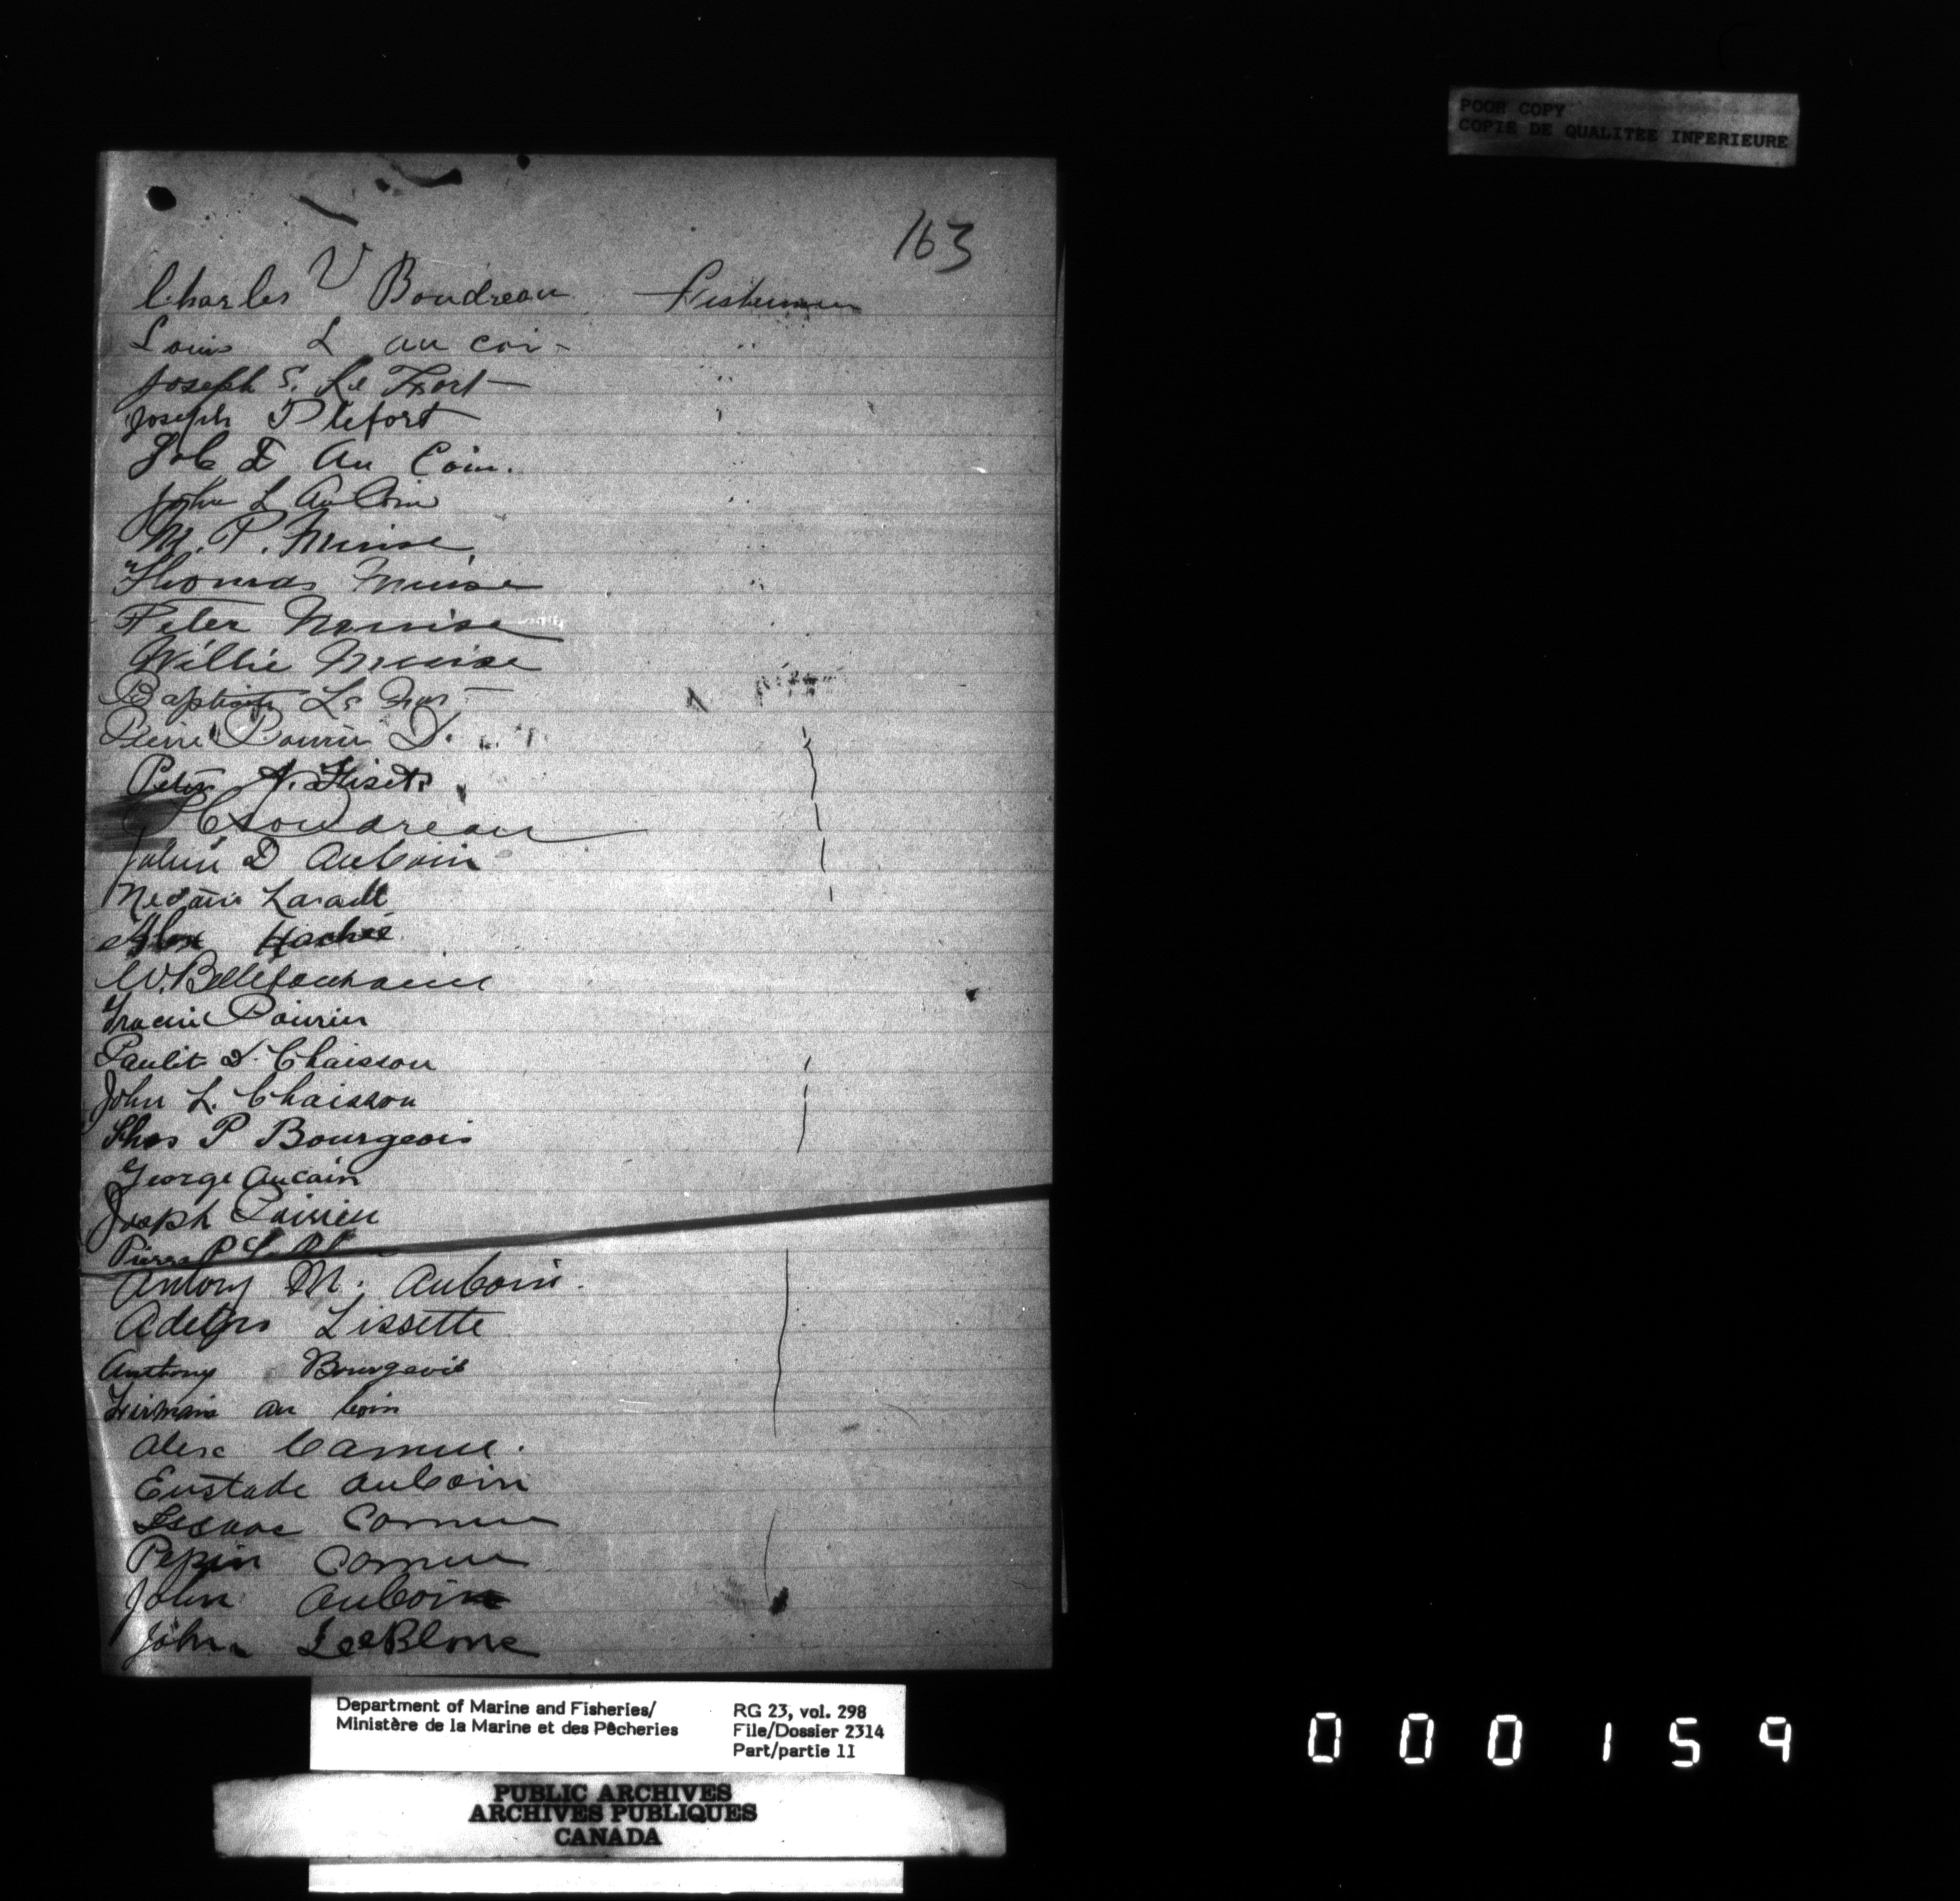 POOR COPY
COPIE DE QUALITEE INFERIEURE
163
Charles V Boudreau Fisherman
Louis L au coi-
Joseph S. Le Fort
Joseph P lefort
Job D Au Coin.
John L AuCoin
M. P. Muise
Thomas Muise
Peter Mouise
Willie Muise
Baptiste Le
Pierre Poirier D.
Peter A.
Boudreau
D AuCoin
Alex Haché
W. Bellefontaine
Poirier
Paulit D. Chaisson
John L. Chaisson
Thos P Bourgeois
George Aucoin
Joseph Poirier
Pierre P
Antony M. AuCoin.
Lissette
Anthony Bourgeois
Firmain au Coin
Alex Camue.
Eustade AuCoin
Comue
Pepin Comue
John AuCoin
John LeeBlone
Department of Marine and Fisheries/ RG 23, vol. 298
Ministère de la Marine et des Pêcheries File/Dossier 2314
Part/partie 11
PUBLIC ARCHIVES
ARCHIVES PUBLIQUES
CANADA
000159